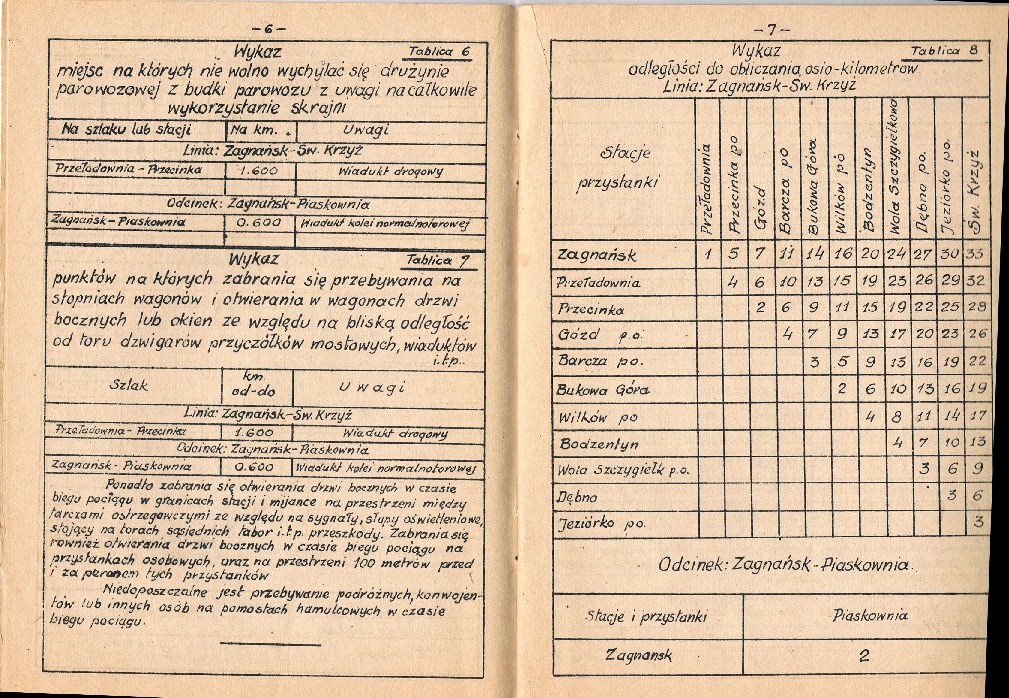 -6-
Wykaz Tablica 6
miejsc na których nie wolno wychylać się drużynie
parowozowej z budki parowozu z uwagi na całkowite
wykorzystanie skrajni
Na szlaku lub stacji Na km. Uwagi
Linia: Zagnańsk-Św. Krzyż
Przeładownia-Przecinka 1.600 Wiadukt drogowy
Odcinek: Zagnańsk-Piaskownia
Zagnańsk-Piaskownia 0.600 Wiadukt kolei normalnotorowej
Wykaz Tablica 7
punktów na których zabrania się przebywania na
stopniach wagonów i otwierania w wagonach drzwi
bocznych lub okien ze względu na bliską odległość
od toru dzwigarów przyczółków mostowych, wiaduktów
i.t.p..
Szlak km. od-do Uwagi
Linia: Zagnańsk-Św. Krzyż
Przeładownia-Przecinka 1.600 Wiadukt drogowy
Odcinek: Zagnańsk-Piaskownia
Zagnańsk-Piaskownia 0.600 Wiadukt kolei normalnotorowej
Ponadto zabrania się otwierania drzwi bocznych w czasie
biegu pociągu w granicach stacji i mijance na przestrzeni między
tarczami ostrzegawczymi ze względu na sygnały, słupy oświetleniowe,
stojący na torach sąsiednich tabor i.t.p. przeszkody. Zabrania się
również otwierania drzwi bocznych w czasie biegu pociągu na
przystankach osobowych, oraz na przestrzeni 100 metrów przed
i za peronem tych przystanków
Niedoposzczalne jest przebywanie podróżnych, konwojen-
tów lub innych osób na pomostach hamulcowych w czasie
biegu pociągu.
-7-
Wykaz Tablica 8
odległości do obliczania osio-kilometrów
Linia: Zagnańsk-Św. Krzyż
Stacje przystanki Przeładownia Przecinka po Gózd Barcza po Bukowa Góra Wilków po Bodzentyn Wola Szczygiełkowa Dębno po. Jeziórko po. Św. Krzyż
Zagnańsk 1 5 7 11 14 16 20 24 27 30 33
Przeładownia 4 6 10 13 15 19 23 26 29 32
Przecinka 2 6 9 11 15 19 22 25 28
Gózd p.o. 4 7 9 13 17 20 23 26
Barcza po. 3 5 9 13 16 19 22
Bukowa Góra 2 6 10 13 16 19
Wilków po 4 8 11 14 17
Bodzentyn 4 7 10 13
Wola Szczygiełk p.o. 3 6 9
Dębno 3 6
Jeziórko po. 3
Odcinek: Zagnańsk-Piaskownia.
Stacje i przystanki Piaskownia
Zagnansk 2